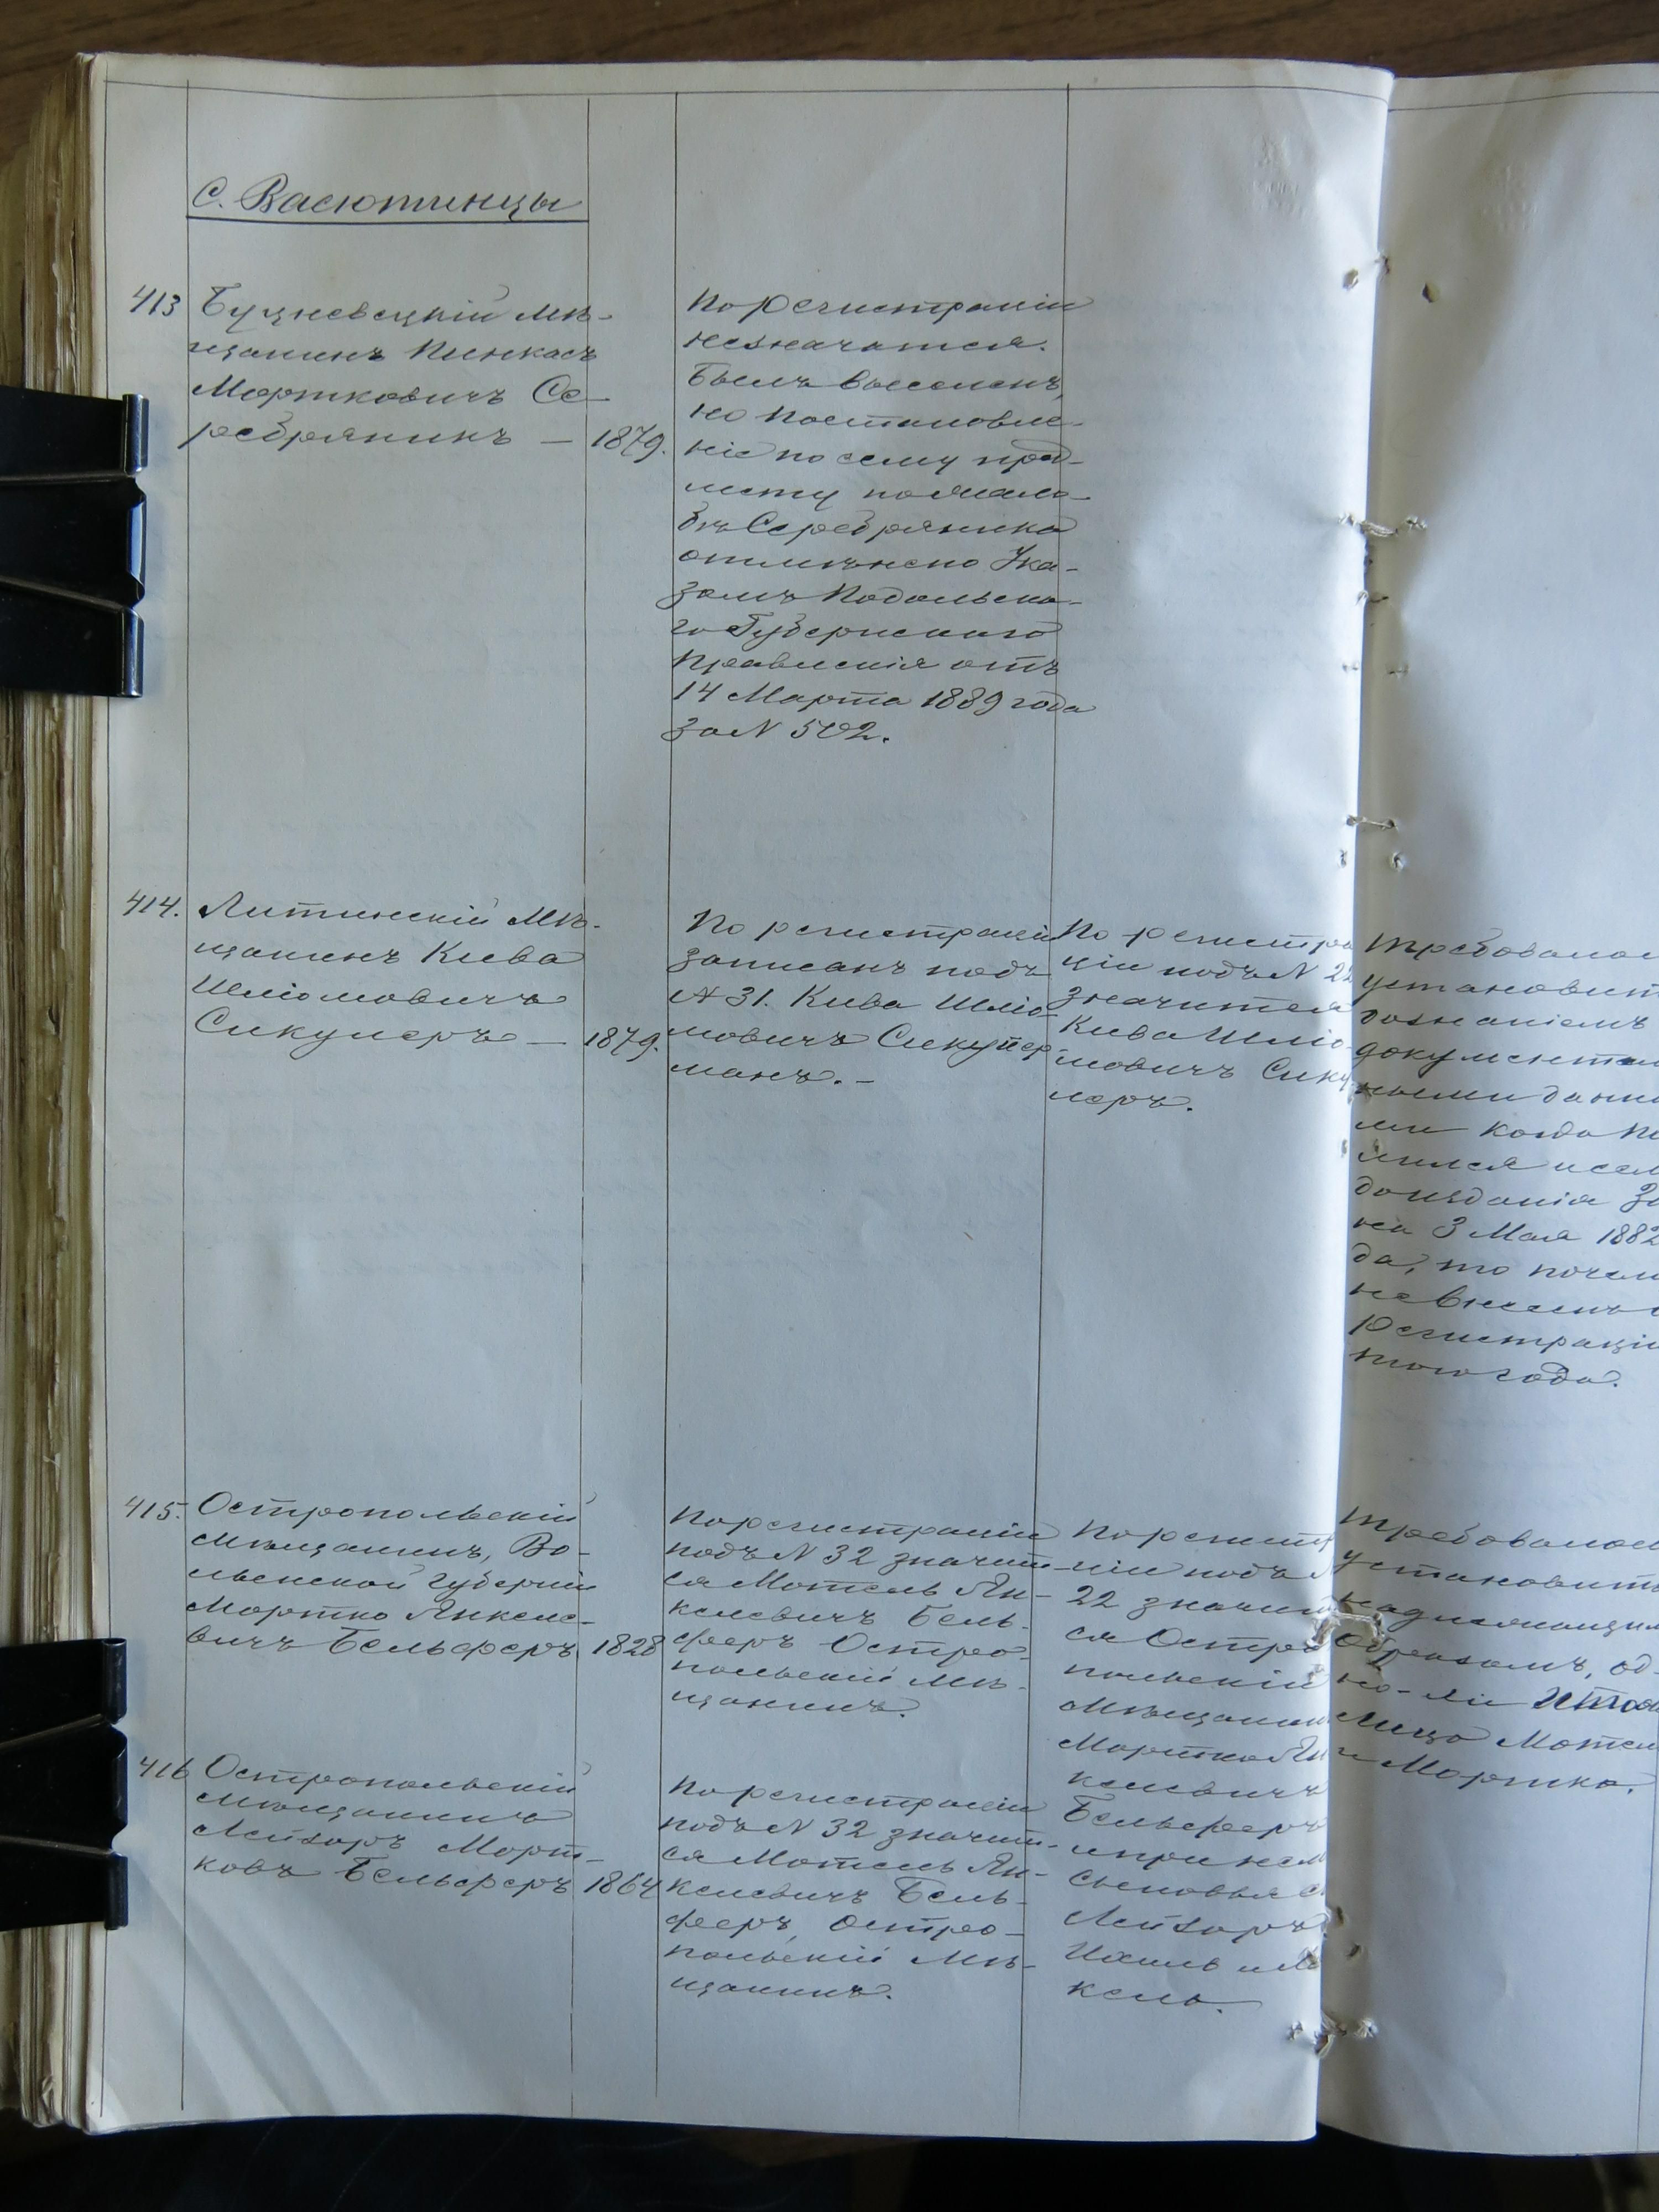 С. Васютинцы
413 Буцневецкій мѣ-
щанинъ Пинкасъ
Мортковичъ Се-
ребрянникъ — 1879.
По регистраціи
незначится.
Былъ выселенъ,
но постановле-
ніе по сему пред-
мету по жало-
бѣ Серебрянника
отмѣнено Ука-
зомъ Подольска-
го Губернскаго
Правленія отъ
14 Марта 1889 года
за N 502.
414. Литинскій мѣ-
щанинъ Кива
Шліомовичъ
Сикулеръ — 1879.
По регистраціи
записанъ подъ
N 31. Кива Шліо-
мовичъ Сикулер-
манъ. —
По регистра
ціи подъ N 22
значится
Кива Шліо-
мовичъ Сику-
леръ.
Требовалос
установит
дознаніемъ
документал
ными данны
ми когда по
лился и если
до изданія За
на 3 Мая 1882
да, то почему
не внесенъ в
Регистрацію
того года.
415. Остропольскій
Мѣщанинъ, Во-
лынской губерніи
Мортко Янкеле-
вичъ Бельферъ 1828
По регистраціи
подъ N 32 значит-
ся Мотель Ян-
келевичъ Бель-
феръ Остро-
польскій мѣ-
щанинъ.
По регист
ціи подъ N
22 значит
ся Остро
польскій
Мѣщанин
Мортко Ян
келевичъ
Бельферъ
и при нем
сыновья е
Лейзоръ
Ихиль и Я
кель.
Требовалос
установить
надлежащим
образомъ, од-
но-ли и то
лицо Мотел
и Мортко.
416 Остропольскій
мѣщанинъ
Лейзоръ Морт-
ковъ Бельферъ 1864
По регистраціи
подъ N 32 значит-
ся Мотель Ян-
келевичъ Бель-
феръ, Остро-
польскій мѣ-
щанинъ.